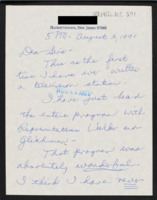 5 PM - August 3, 1991
Dear Sirs -
This is the first
time I have ever written
a television station.
I have just heard
the entire program with
Representatives Weber and
Glickman -
That program was
absolutely wonderful.
I think I have never